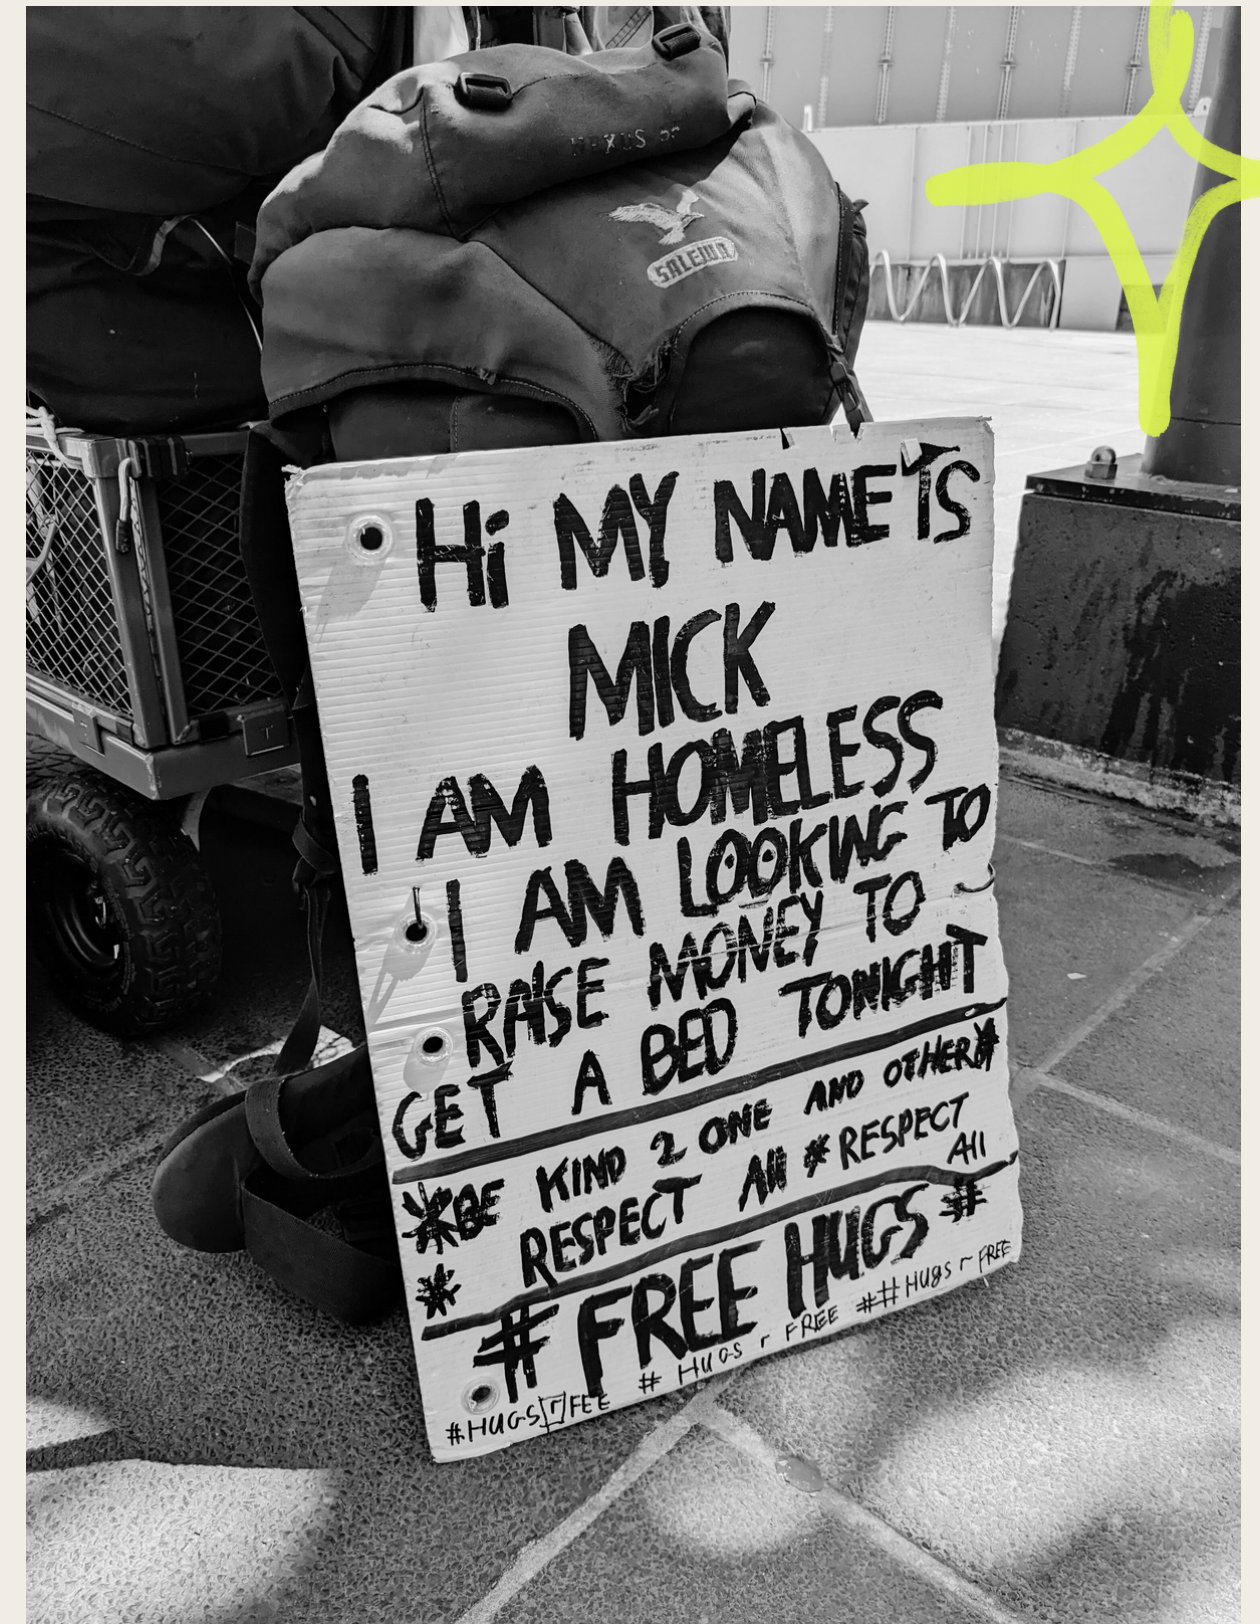 SALEWA
Hi MY NAME IS
MICK
I AM HOMELESS
I AM LOOKING TO
RAISE MONEY TO
GET A BED TONIGHT
*BE KIND 2 ONE AND OTHER*
* RESPECT All # RESPECT
All
# FREE HUGS #
#HUGS r FEE # HUGS r FREE ## HUgs r FREE